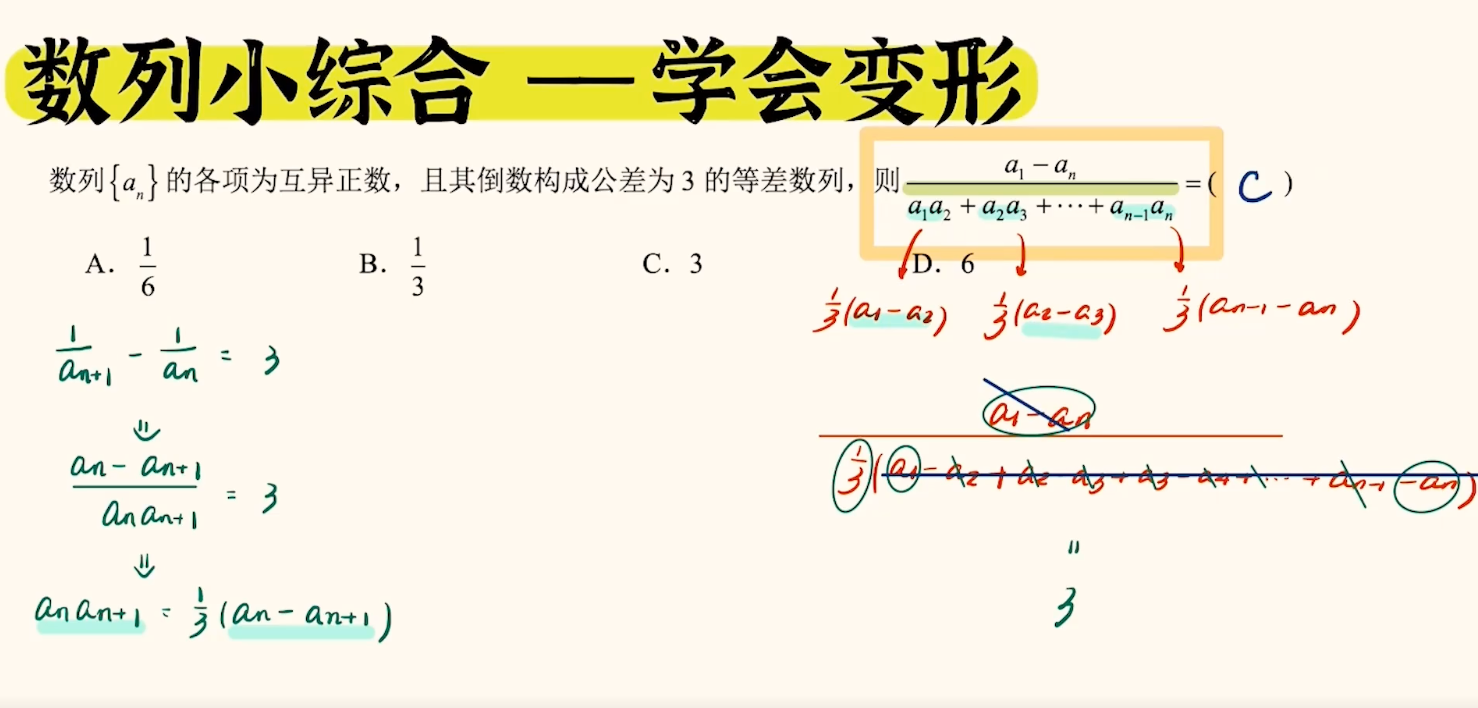 数列小综合 — 学会变形
数列{aₙ}的各项为互异正数，且其倒数构成公差为 3 的等差数列，则 (a₁ − aₙ)/(a₁a₂ + a₂a₃ + ⋯ + aₙ₋₁aₙ) = ( C )
A. 1/6 B. 1/3 C. 3 D. 6
1/3(a₁−a₂) 1/3(a₂−a₃) 1/3(aₙ₋₁−aₙ)
1/aₙ₊₁ − 1/aₙ = 3
⇓
(aₙ − aₙ₊₁)/(aₙaₙ₊₁) = 3
⇓
aₙaₙ₊₁ = 1/3(aₙ − aₙ₊₁)
a₁−aₙ
1/3(a₁−a₂+a₂−a₃+a₃−a₄+⋯+aₙ₋₁−aₙ)
=
3